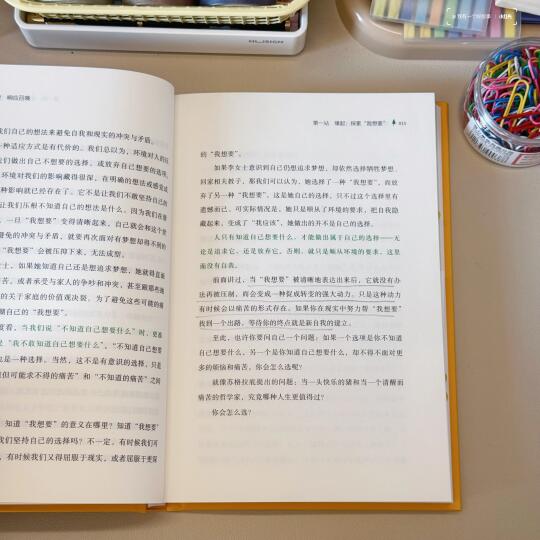 响应召唤
我们自己的想法来避免自我和现实的冲突与矛盾。
一种适应方式是有代价的。我们总以为，环境对人的
我们做出自己不想要的选择，或放弃自己想要的选项，
环境对我们的影响藏得很深，在明确的想法或感受成
种影响就已经存在了。它不是让我们不敢坚持自己的
让我们压根不知道自己的想法是什么。因为我们在潜
，一旦“我想要”变得清晰起来，自己就会和这个世
避免的冲突与矛盾，就要再次面对有梦想却得不到的
“我想要”会被压抑下来，无法成型。
士，如果她知道自己还是想追求梦想，她就得直面
，或者承受与家人的争吵和冲突，甚至颠那些她
的关于家庭的价值观决裂。为了避免这些可能的痛
自己的“我想要”。
度看，当我们说“不知道自己想要什么”时，更准
是“我不敢知道自己想要什么”。“不知道自己想要
也是一种选择。当然，这不是有意识的选择，只是
但可能求不得的痛苦”和“不知道的痛苦”之间
知道“我想要”的意义在哪里？知道“我想要”
我们坚持自己的选择吗？不一定。有时候我们可
，有时候我们又得屈服于现实，或者屈服于更深
第一站 缘起：探索“我想要” 015
的“我想要”。
如果李女士意识到自己仍想追求梦想，却依然选择牺牲梦想，
回家相夫教子，那我们可以认为，她选择了一种“我想要”，而放
弃了另一种“我想要”，这是她自己的选择。只不过这个选择里有
遗憾而已。可实际情况是，她只是顺从了环境的要求，把自我隐
藏起来，变成了“我应该”，她做出的并不是自己的选择。
人只有知道自己想要什么，才能做出属于自己的选择——无
论是追求它，还是放弃它，否则，就只是顺从环境的要求，这里
面没有自我。
前面讲过，当“我想要”被清晰地表达出来后，它就没有办
法再被压制，而会变成一种促成转变的强大动力。只是这种动力
有时候会以痛苦的形式存在。如果你在现实中努力帮“我想要”
找到一个出路，等待你的终点就是新自我的建立。
至此，也许你要问自己一个问题：如果一个选项是你不知道
自己想要什么，另一个是你知道自己想要什么，却不得不面对更
多的烦恼和痛苦，你会怎么选呢？
就像苏格拉底提出的问题：当一头快乐的猪和当一个清醒而
痛苦的哲学家，究竟哪种人生更值得过？
你会怎么选？